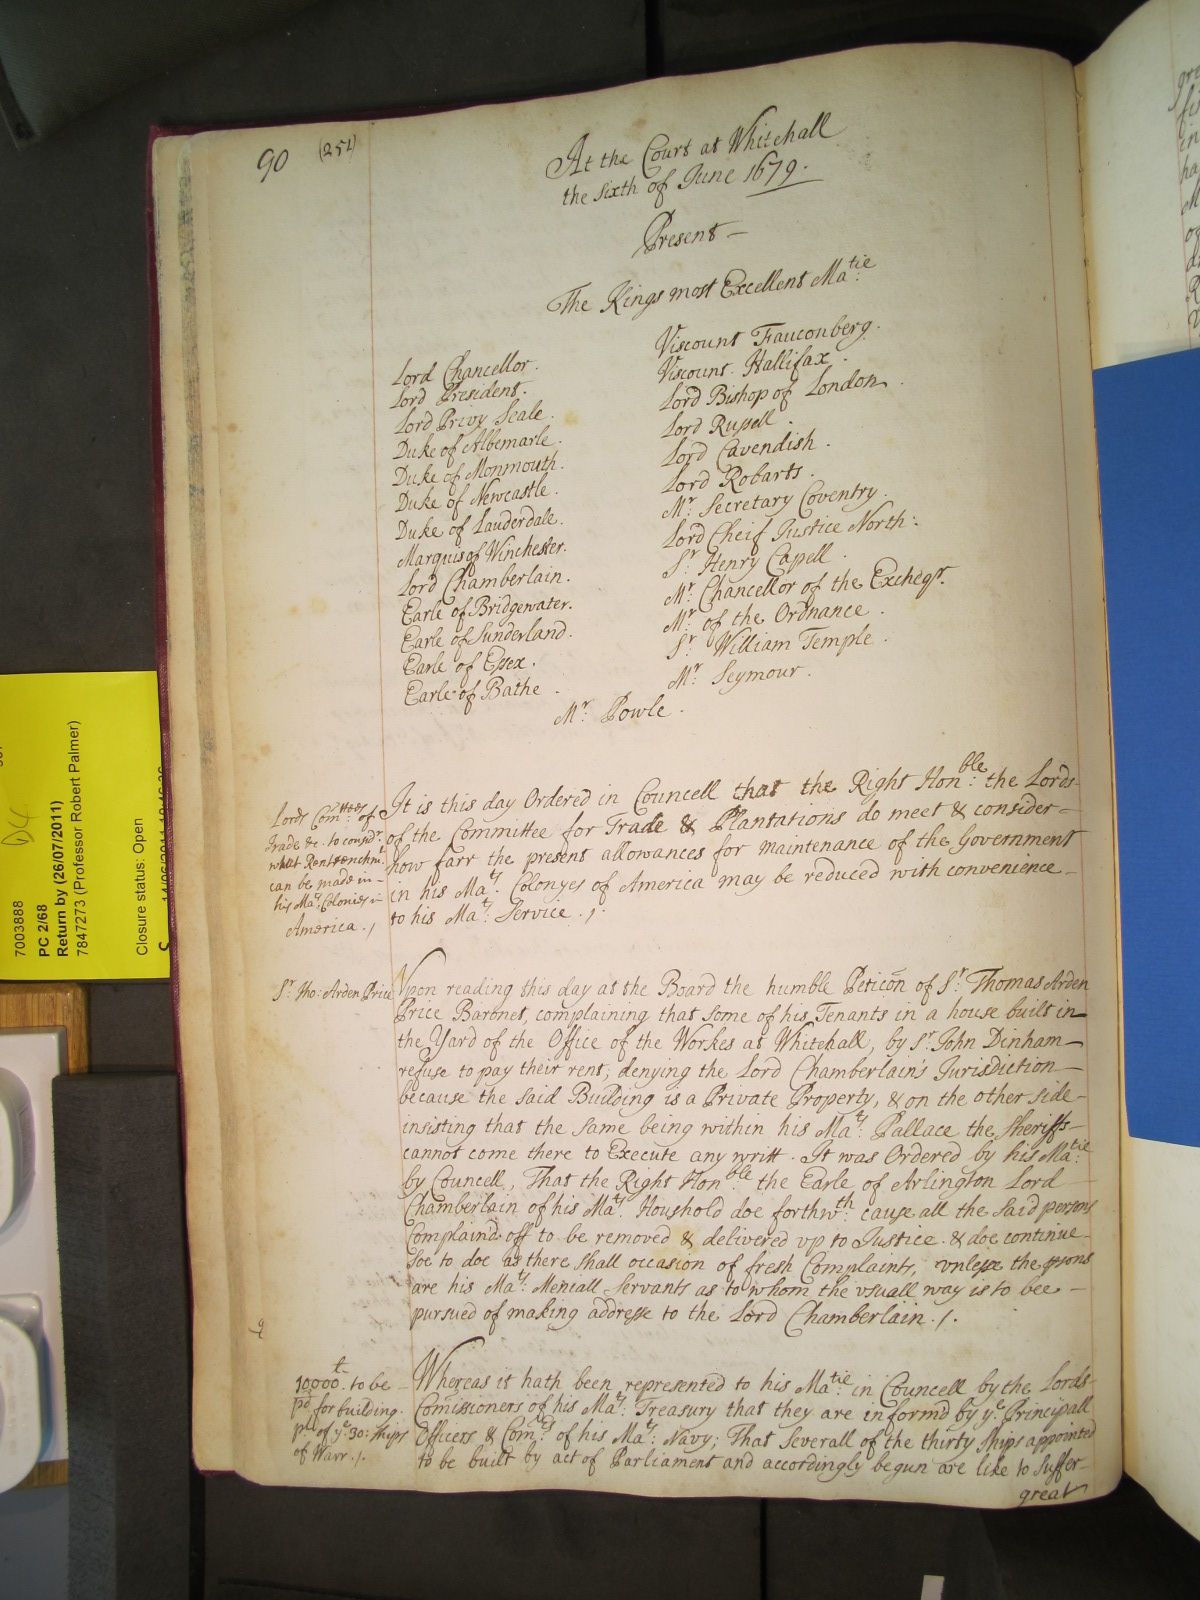 90 (251)
At the Court at Whitehall
the sixth of June 1679.
Present —
The Kings most Excellent Ma:tie
Lord Chancellor.
Lord President.
Lord Privy Seale.
Duke of Albemarle.
Duke of Monmouth.
Duke of Newcastle.
Duke of Lauderdale.
Marquis of Winchester.
Lord Chamberlain.
Earle of Bridgewater.
Earle of Sunderland.
Earle of Essex.
Earle of Bathe.
Viscount Fauconberg.
Viscount Hallifax.
Lord Bishop of London.
Lord Russell.
Lord Cavendish.
Lord Robarts.
Mr: Secretary Coventry.
Lord Cheif Justice North:
Sr: Henry Capell.
Mr: Chancellor of the Excheqr.
Mr: of the Ordnance.
Sr: William Temple.
Mr: Seymour.
Mr: Powle.
Lords Comttees of
Trade &c. to considr.
what Rentrenchmt
can be made in
his Mats: Colonies in
America./
It is this day Ordered in Councell that the Right Hon:ble the Lords
of the Committee for Trade & Plantations do meet & consider
how farr the present allowances for maintenance of the Government
in his Mats: Colonyes of America may be reduced with convenience
to his Mats: Service./
Sr: Tho: Arden Price
Vpon reading this day at the Board the humble Peticōn of Sr: Thomas Arden
Price Baronet, complaining that some of his Tenants in a house built in
the Yard of the Office of the Workes at Whitehall, by Sr: John Dinham
refuse to pay their rent, denying the Lord Chamberlain's Jurisdiction
because the said Building is a Private Property, & on the other side
insisting that the same being within his Mats: Pallace the Sheriffs
cannot come there to Execute any writt. It was Ordered by his Ma:tie
by Councell, That the Right Hon:ble the Earle of Arlington Lord
Chamberlain of his Mats: Houshold doe forthwth: cause all the said persons
Complaind off to be removed & delivered vp to Justice. & doe continue
soe to doe as there shall occasion of fresh Complaints, vnlesse the psons
are his Mats: Meniall Servants as to whom the vsuall way is to bee
pursued of making addresse to the Lord Chamberlain./.
10000l. to be
pd for building
pt of ye: 30: ships
of Warr./.
Whereas it hath been represented to his Ma:tie in Councell by the Lords
Comissioners of his Mats: Treasury that they are informd by ye Principall
Officers & Comrs: of his Mats: Navy; That severall of the thirty ships appointed
to be built by act of Parliament and accordingly begun are like to suffer
great
7003888
PC 2/68
Return by (26/07/2011)
7847273 (Professor Robert Palmer)
Closure status: Open